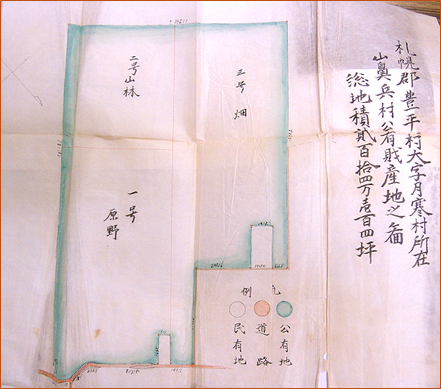 札幌郡豊平村大字月寒村所在
山鼻兵村公有財産地之図
総地積貳百拾四万壱百四坪
三号
畑
二号
山林
一号
原野
凡例
公有地
道路
民有地